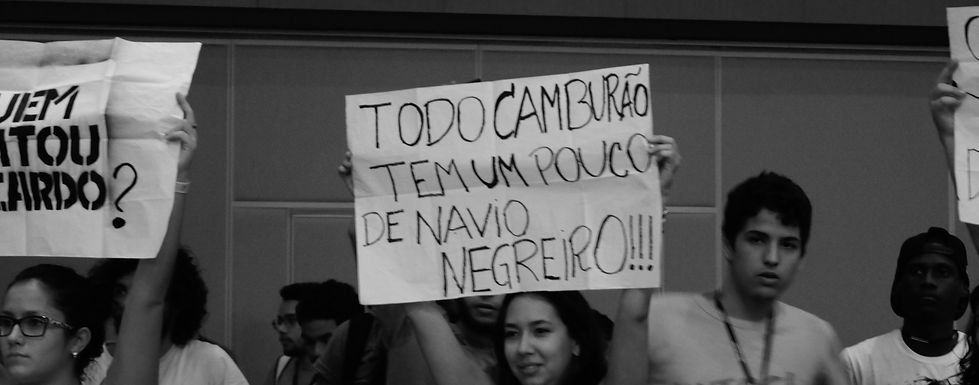 UEM
ATOU
CARDO?
TODO CAMBURÃO
TEM UM POUCO
DE NAVIO
NEGREIRO!!!